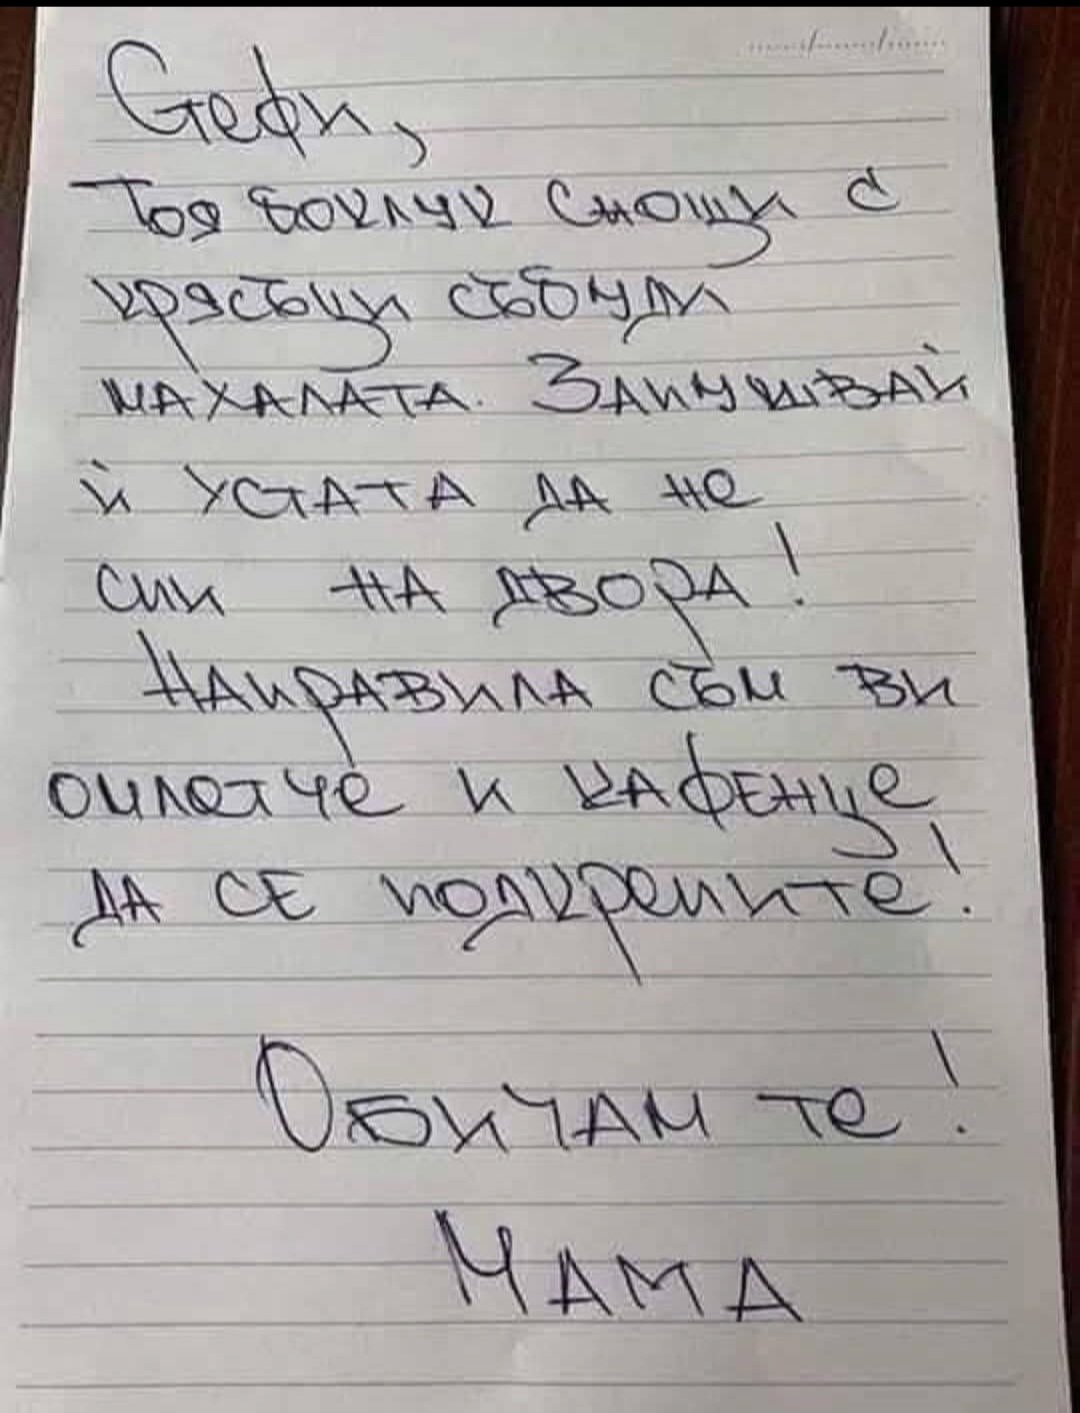 Стефи,
Тоя боклук снощи с
крясъци събуди
махалата. Запушвай
ѝ устата да не
спи на двора!
Направила съм ви
омлетче и кафенце
да се подкрепите!
Обичам те!
Мама